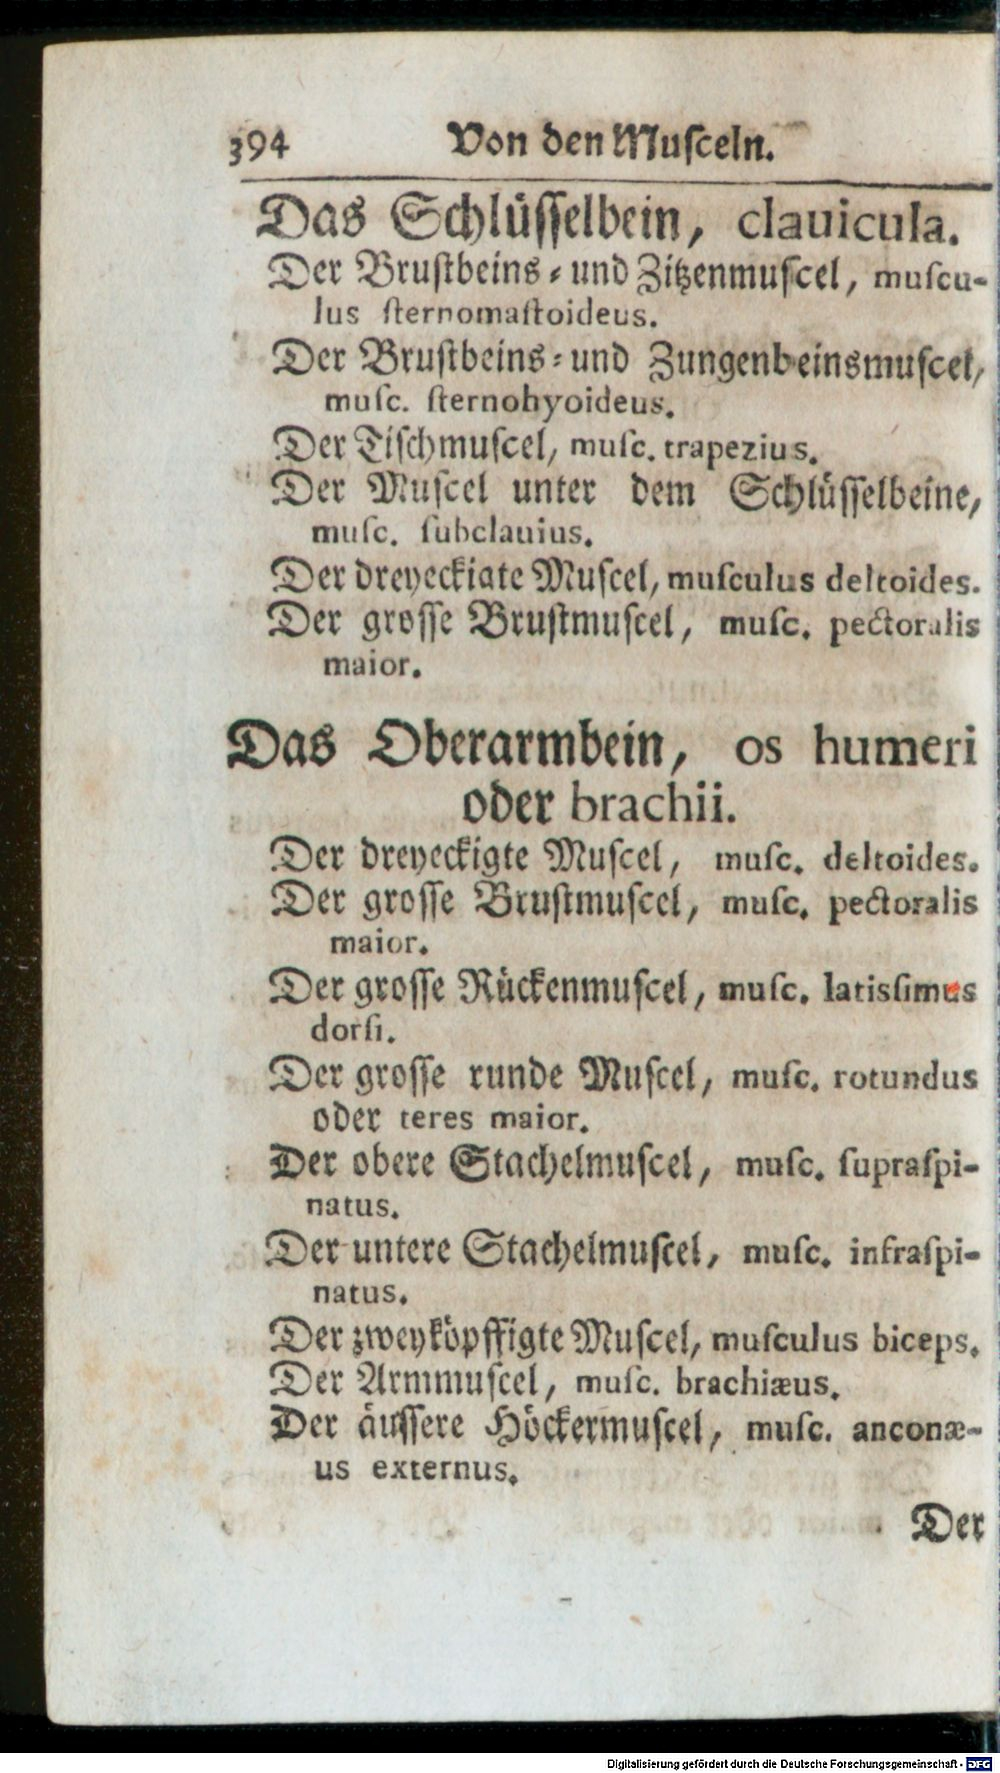 394 Von den Muſceln.
Das Schlüſſelbein, clauicula.
Der Bruſtbeins⸗ und Zitzenmuſcel, muſcu-
lus ſternomaſtoideus.
Der Bruſtbeins⸗ und Zungenbeinsmuſcel,
muſc. ſternohyoideus.
Der Tiſchmuſcel, muſc. trapezius.
Der Muſcel unter dem Schlüſſelbeine,
muſc. ſubclauius.
Der dreyeckigte Muſcel, muſculus deltoides.
Der groſſe Bruſtmuſcel, muſc. pectoralis
maior.
Das Oberarmbein, os humeri
oder brachii.
Der dreyeckigte Muſcel, muſc. deltoides.
Der groſſe Bruſtmuſcel, muſc. pectoralis
maior.
Der groſſe Rückenmuſcel, muſc. latisſimus
dorſi.
Der groſſe runde Muſcel, muſc. rotundus
oder teres maior.
Der obere Stachelmuſcel, muſc. ſupraſpi-
natus.
Der untere Stachelmuſcel, muſc. infraſpi-
natus.
Der zweyköpffigte Muſcel, muſculus biceps.
Der Armmuſcel, muſc. brachiæus.
Der äuſſere Höckermuſcel, muſc. anconæ-
us externus.
Der
Digitalisierung gefördert durch die Deutsche Forschungsgemeinschaft - DFG